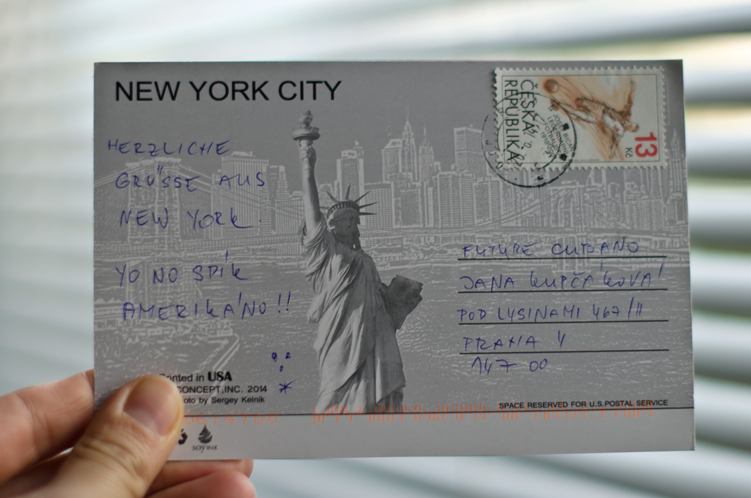 NEW YORK CITY
HERZLICHE
GRÜSSE AUS
NEW YORK.
YO NO SPÍK
AMERIKÁNO!!
ČESKÁ
REPUBLIKA
13
Kč
FUTURE CUBANO
JANA KUPČÁKOVÁ
POD LYSINAMI 467/11
PRAHA 4
147 00
Printed in USA
CONCEPT, INC. 2014
Photo by Sergey Kelnik
SPACE RESERVED FOR U.S. POSTAL SERVICE
SOY INK